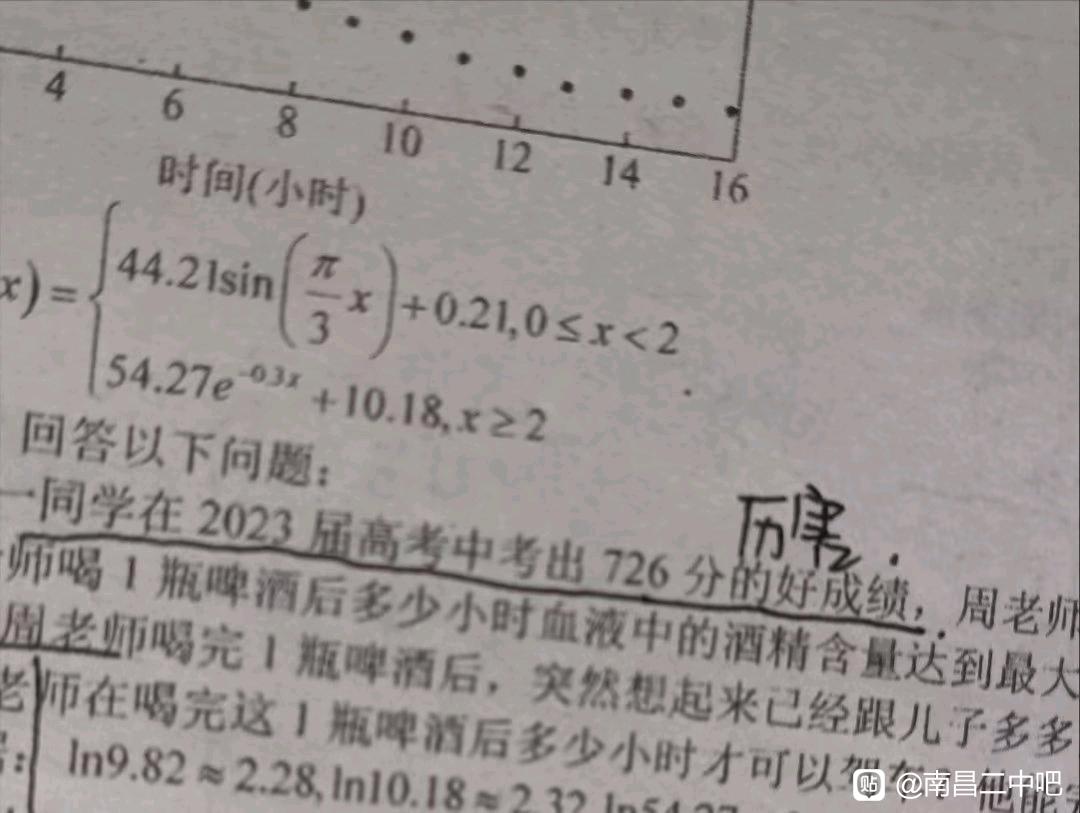 4 6 8 10 12 14 16
时间(小时)
x)={44.21sin(π/3 x)+0.21,0≤x<2
54.27e^-0.3x+10.18,x≥2.
回答以下问题:
厉害.
一同学在 2023 届高考中考出 726 分的好成绩,周老师
师喝 1 瓶啤酒后多少小时血液中的酒精含量达到最大
周老师喝完 1 瓶啤酒后,突然想起来已经跟儿子多多
老师在喝完这 1 瓶啤酒后多少小时才可以驾车?他能
ln9.82≈2.28,ln10.18≈2.32
贴 @南昌二中吧